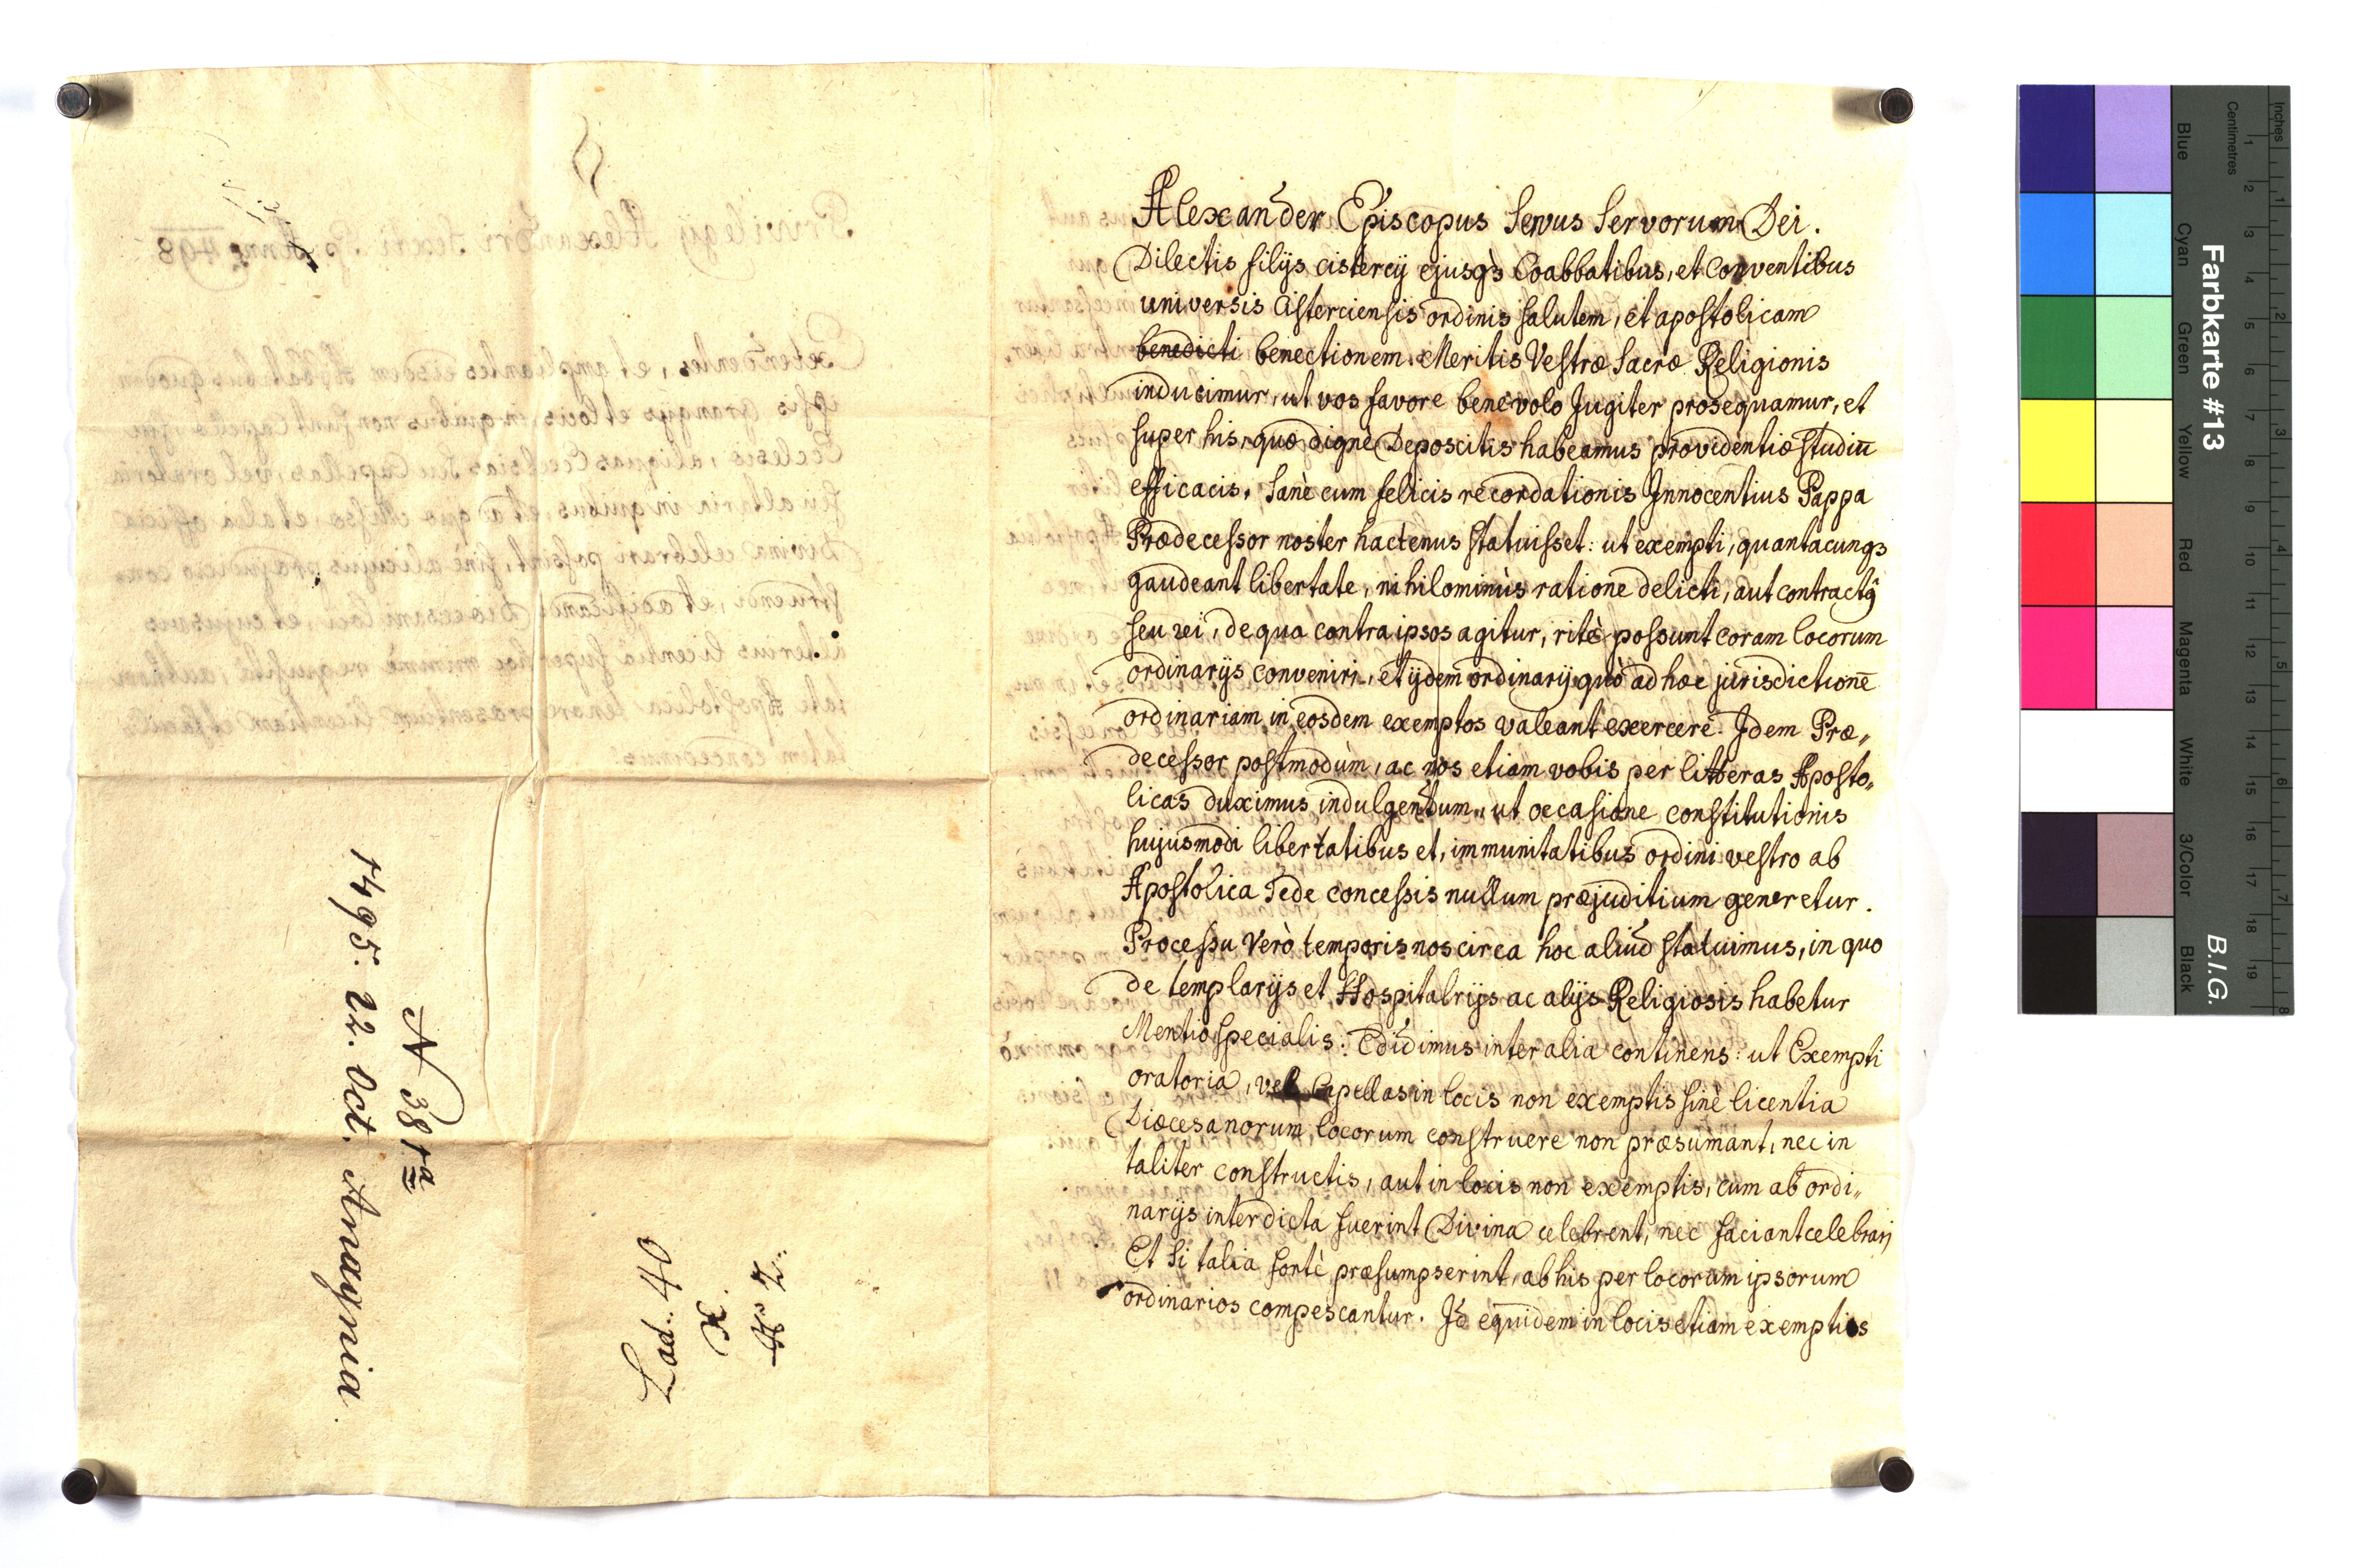 Alexander Episcopus Servus Servorum Dei.
Dilectis filijs cistercij ejusqз Coabbatibus, et Conventibus
universis Cisterciensis ordinis salutem, et apostolicam
benedicti benectionem. Meritis Vestræ Sacræ Religionis
inducimur, ut vos favore benevolo Jugiter prosequamur, et
super his, quæ dignè Deposcitis habeamus providentiæ studiū
efficacis. Sanè cum felicis recordationis Innocentius Pappa
Prædecessor noster hactenus statuisset: ut exempti, quantacunqз
gaudeant libertate, nihilominùs ratione delicti, aut contractꝯ
seu rei, de qua contra ipsos agitur, ritè possunt coram locorum
ordinarijs conveniri, et ijdem ordinarij quò ad hoc jurisdictionē
ordinariam in eosdem exemptos valeant exercere. Idem Præ„
decessor postmodùm, ac nos etiam vobis per litteras Aposto„
licas duximus indulgendum, ut occasione constitutionis
hujusmodi libertatibus et, immunitatibus ordini vestro ab
Apostolica Sede concessis nullum præjuditium generetur.
Processu Verò temporis nos circa hoc aliud statuimus, in quo
de templarijs et Hospitalrijs ac alijs Religiosis habetur
Mentio specialis. Edidimus inter alia continens: ut Exempti
oratoria, vel Capellas in locis non exemptis sinè licentia
Diœcesanorum locorum construere non præsumant, nec in
taliter constructis, aut in locis non exemptis, cum ab ordi„
narijs interdicta fuerint Divina celebrent, nec faciant celebrari
Et si talia fortè præsumpserint, ab his per locorum ipsorum
ordinarios compescantur. Id equidem in locis etiam exemptis
N 381a
1495. 22. Oct. Anagnia.
Lad. 40
X.
No 2.
Privilegij Alexandri Sexti Pp. Anno 498
Extendentes, et ampliantes eisdem Abbatibus quodem
ipsis Grangijs et locis, in quibus non sunt Capellæ seu
Ecclesiæ, aliquas Ecclesias seu Capellas, vel oratoria
seu altaria in quibus, et à quo Missæ, et alia officia
Divina celebrari possint, sinè alicujus præjudicio con„
struendi, et ædificandi Diœcesani loci, et cujusvis
alterius licentiâ super hoc minimè requisitâ, authori
tate Apostolica tenore præsentium licentiam et facul
tatem concedimus.
Farbkarte #13
B.I.G.
Inches
1 2 3 4 5 6 7 8
Centimetres
1 2 3 4 5 6 7 8 9 10 11 12 13 14 15 16 17 18 19
Blue
Cyan
Green
Yellow
Red
Magenta
White
3/Color
Black